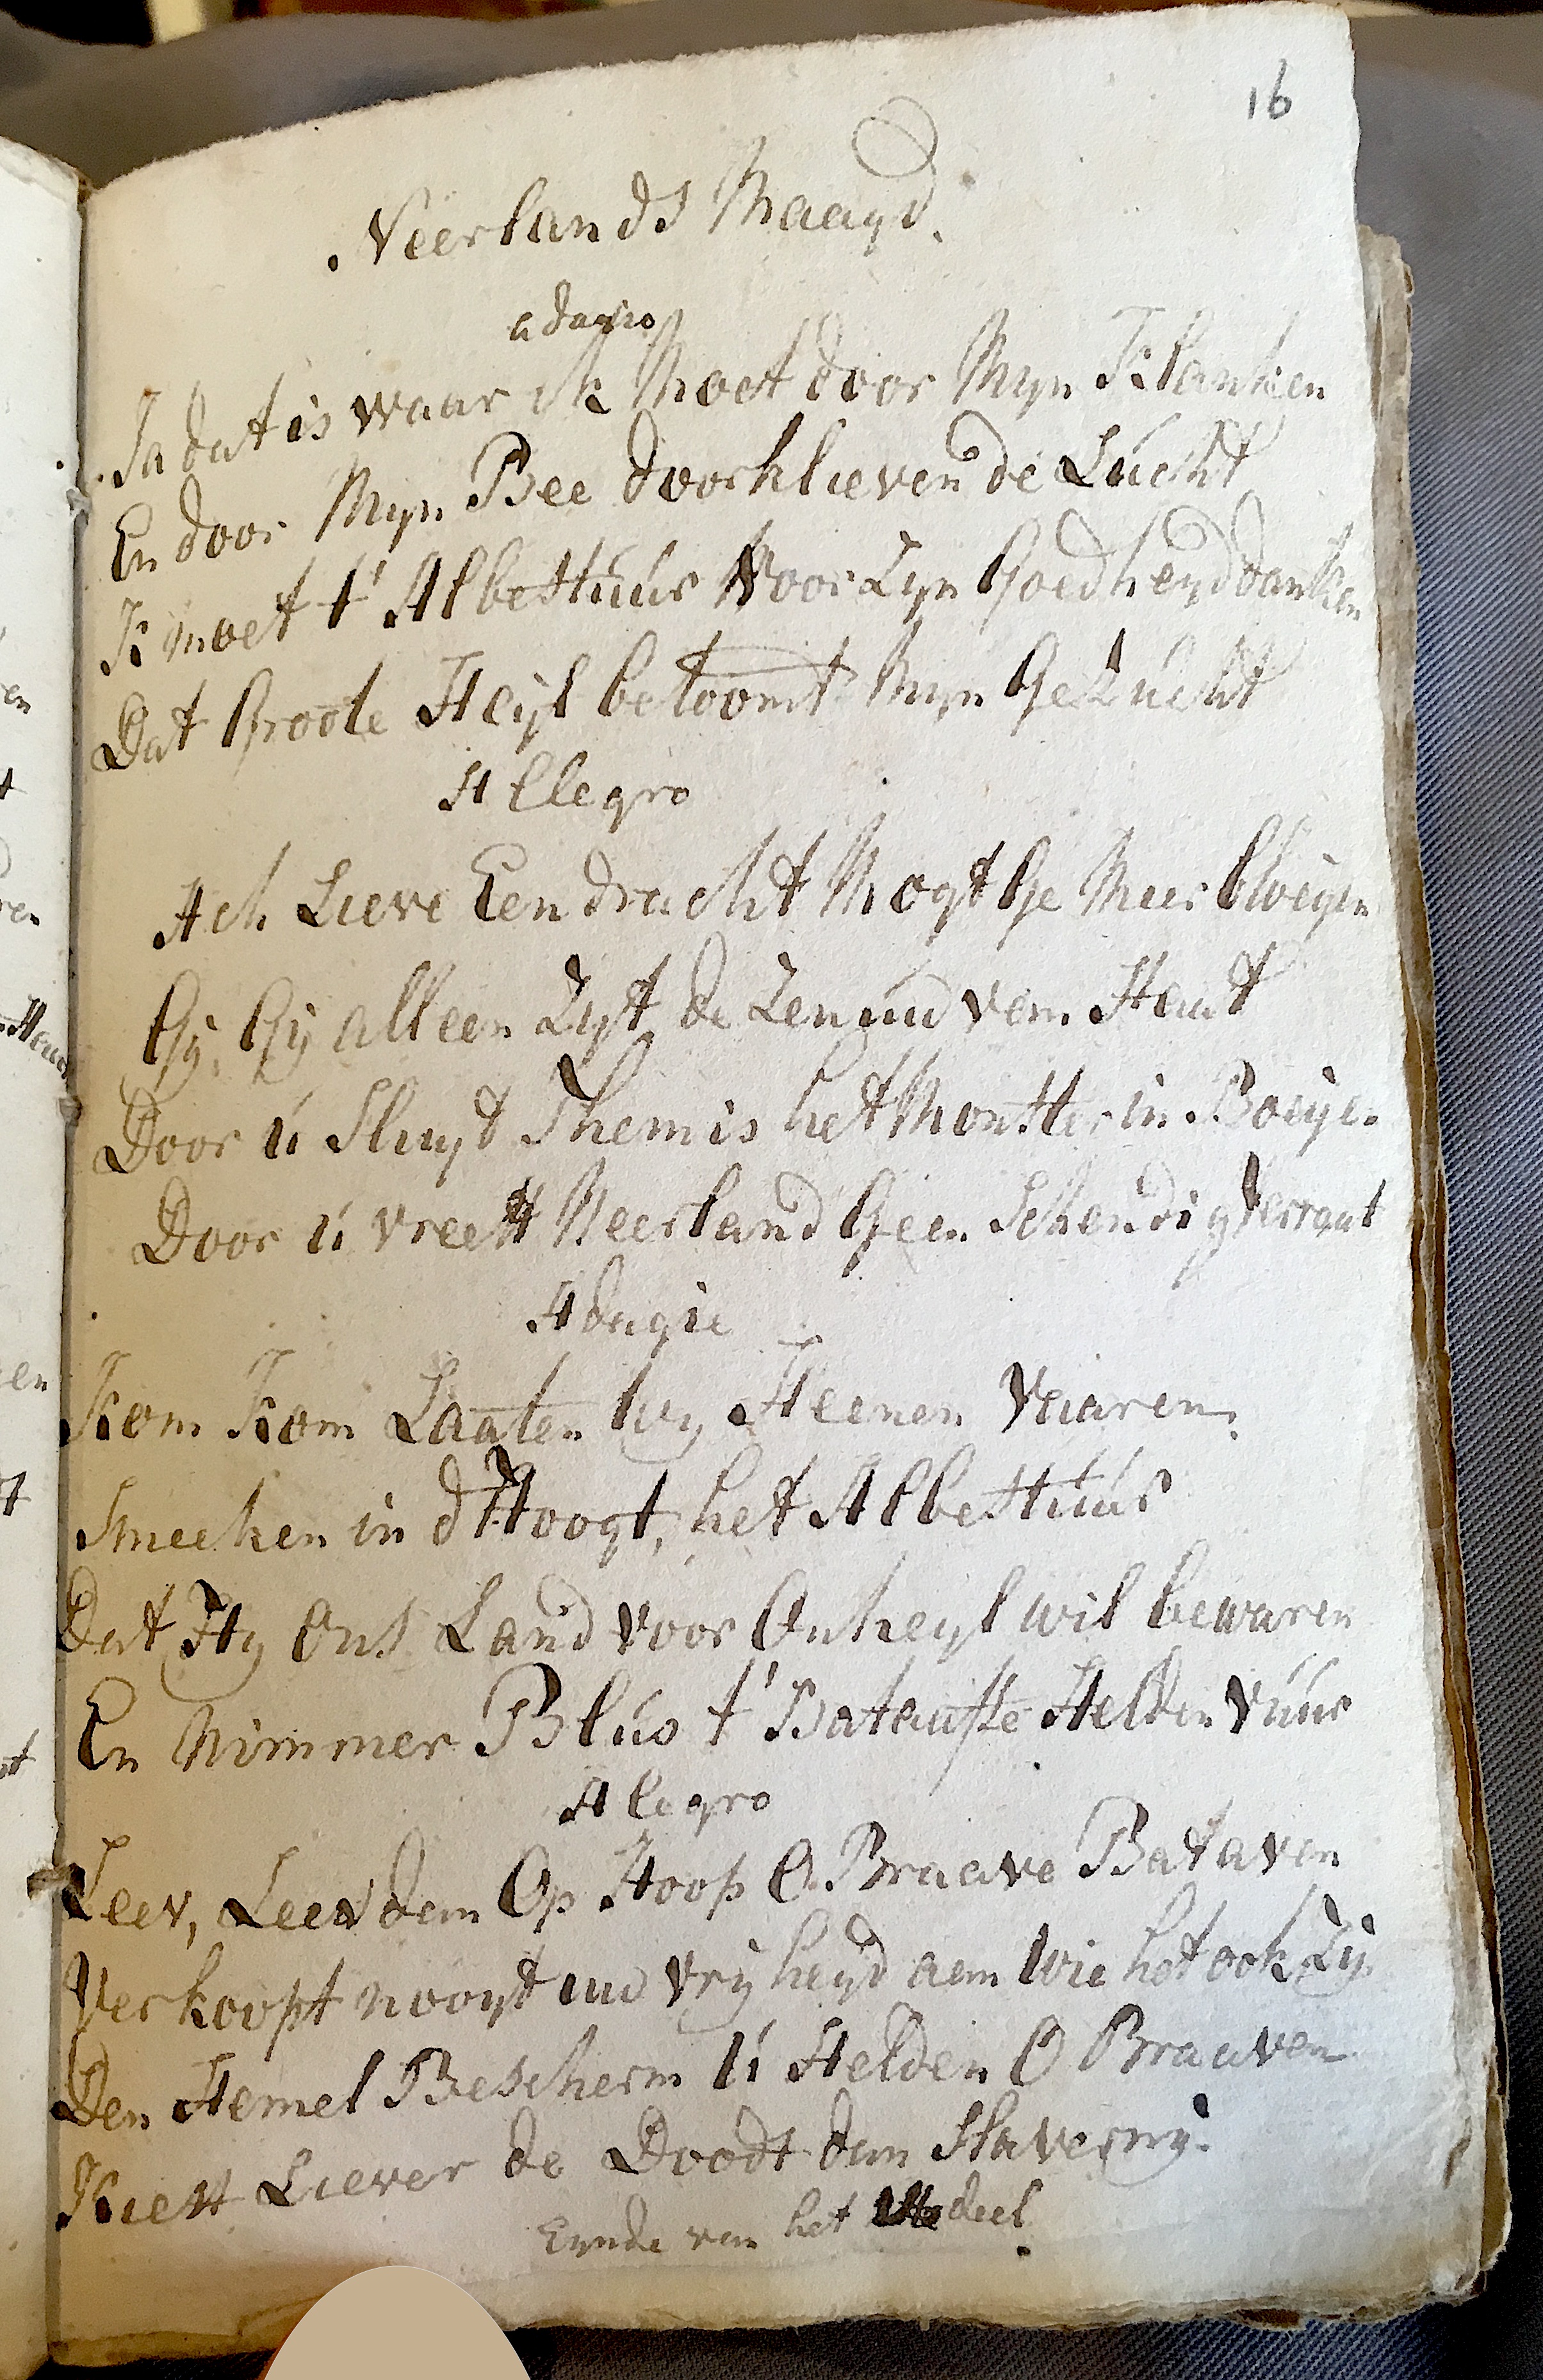 16
Neerlands Maagd.
adagio
Ja dat is waar ik Moet door Myn Klanken
En door Myn Bee doorklieven de Lúcht
Ik moet t' Albestúúr Voor Zyn Goedheyd danken
Dat Groote Heyl betoomt Myn Gezúcht
Allegro
Ach Lieve Eendracht Mogt Ge Meer bloeyen
Gy, Gy alleen Zyt de Zenuw van Staat
Door ú Sluyt Themis het Monster in Boeyen
Door ú vreest Neerland Geen Schendig Verraat
Adagie
Kom Kom Laaten wy Heenen Vaaren
Smeeken in d'Hoogt, het Albestúúr
Dat Hy Ons Land voor Onheyl wil bewaren
En Nimmer Blús t' Bataafse Helden Vúúr
Alegro
Leev, Leev dan Op Hoop O Braave Bataven
Verkoopt nooyt uw vryheyd aan Wie het ook Zy.
Den Hemel Bescherm ú Helden O Braaven
Kiest Liever de Doodt dan Slaverny.
Eynde van het deel